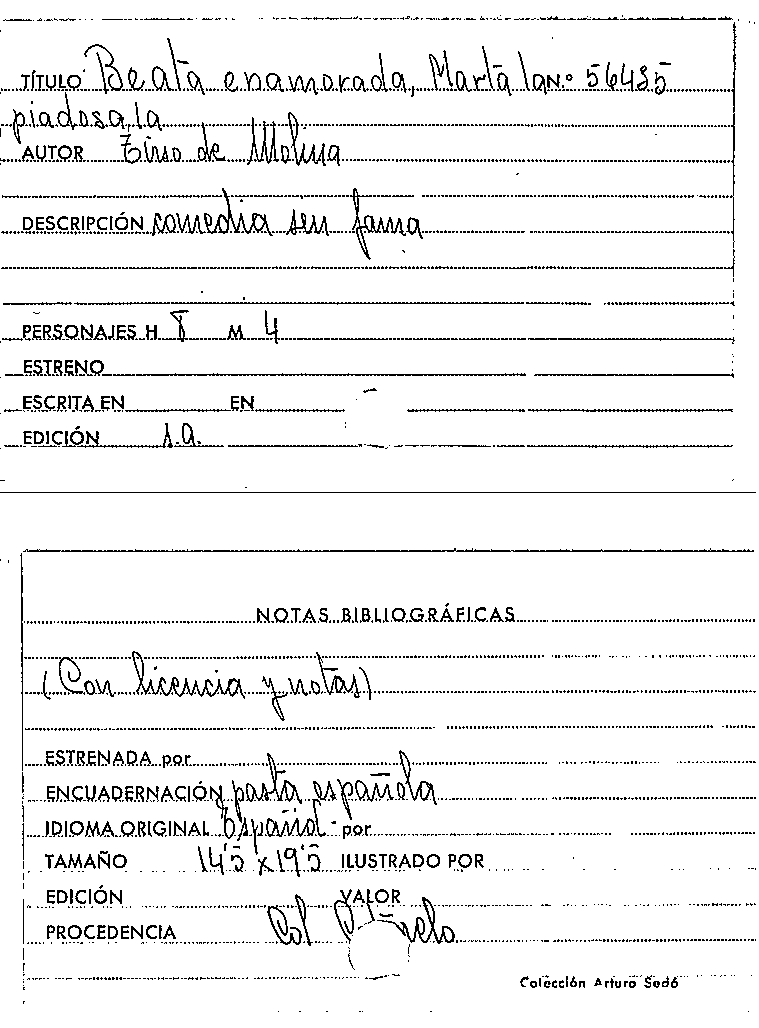 TÍTULO Beata enamorada, Marta la N.º 56435
piadosa, la
AUTOR Tirso de Molina
DESCRIPCIÓN comedia sin fama
PERSONAJES H 8 M 4
ESTRENO
ESCRITA EN EN
EDICIÓN s.a.
NOTAS BIBLIOGRÁFICAS
(Con licencia y notas)
ESTRENADA por
ENCUADERNACIÓN pasta española
IDIOMA ORIGINAL Español por
TAMAÑO 14'5 x 19'5 ILUSTRADO POR
EDICIÓN VALOR
PROCEDENCIA Col
Colección Arturo Sedó